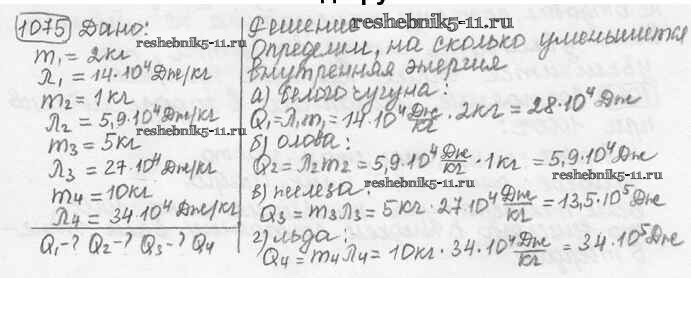 1075 Дано:
m₁ = 2кг
λ₁ = 14·10⁴ Дж/кг
m₂ = 1кг
λ₂ = 5,9·10⁴ Дж/кг
m₃ = 5кг
λ₃ = 27·10⁴ Дж/кг
m₄ = 10кг
λ₄ = 34·10⁴ Дж/кг
Q₁-? Q₂-? Q₃-? Q₄
Решение
Определим, на сколько уменьшится
внутренняя энергия
а) белого чугуна:
Q₁ = λ₁m₁ = 14·10⁴ Дж/кг · 2кг = 28·10⁴ Дж
б) олова:
Q₂ = λ₂m₂ = 5,9·10⁴ Дж/кг · 1кг = 5,9·10⁴ Дж
в) железа:
Q₃ = m₃λ₃ = 5кг · 27·10⁴ Дж/кг = 13,5·10⁵ Дж
г) льда:
Q₄ = m₄λ₄ = 10кг · 34·10⁴ Дж/кг = 34·10⁵ Дж
reshebnik5-11.ru
reshebnik5-11.ru
reshebnik5-11.ru
reshebnik5-11.ru
reshebnik5-11.ru
reshebnik5-11.ru